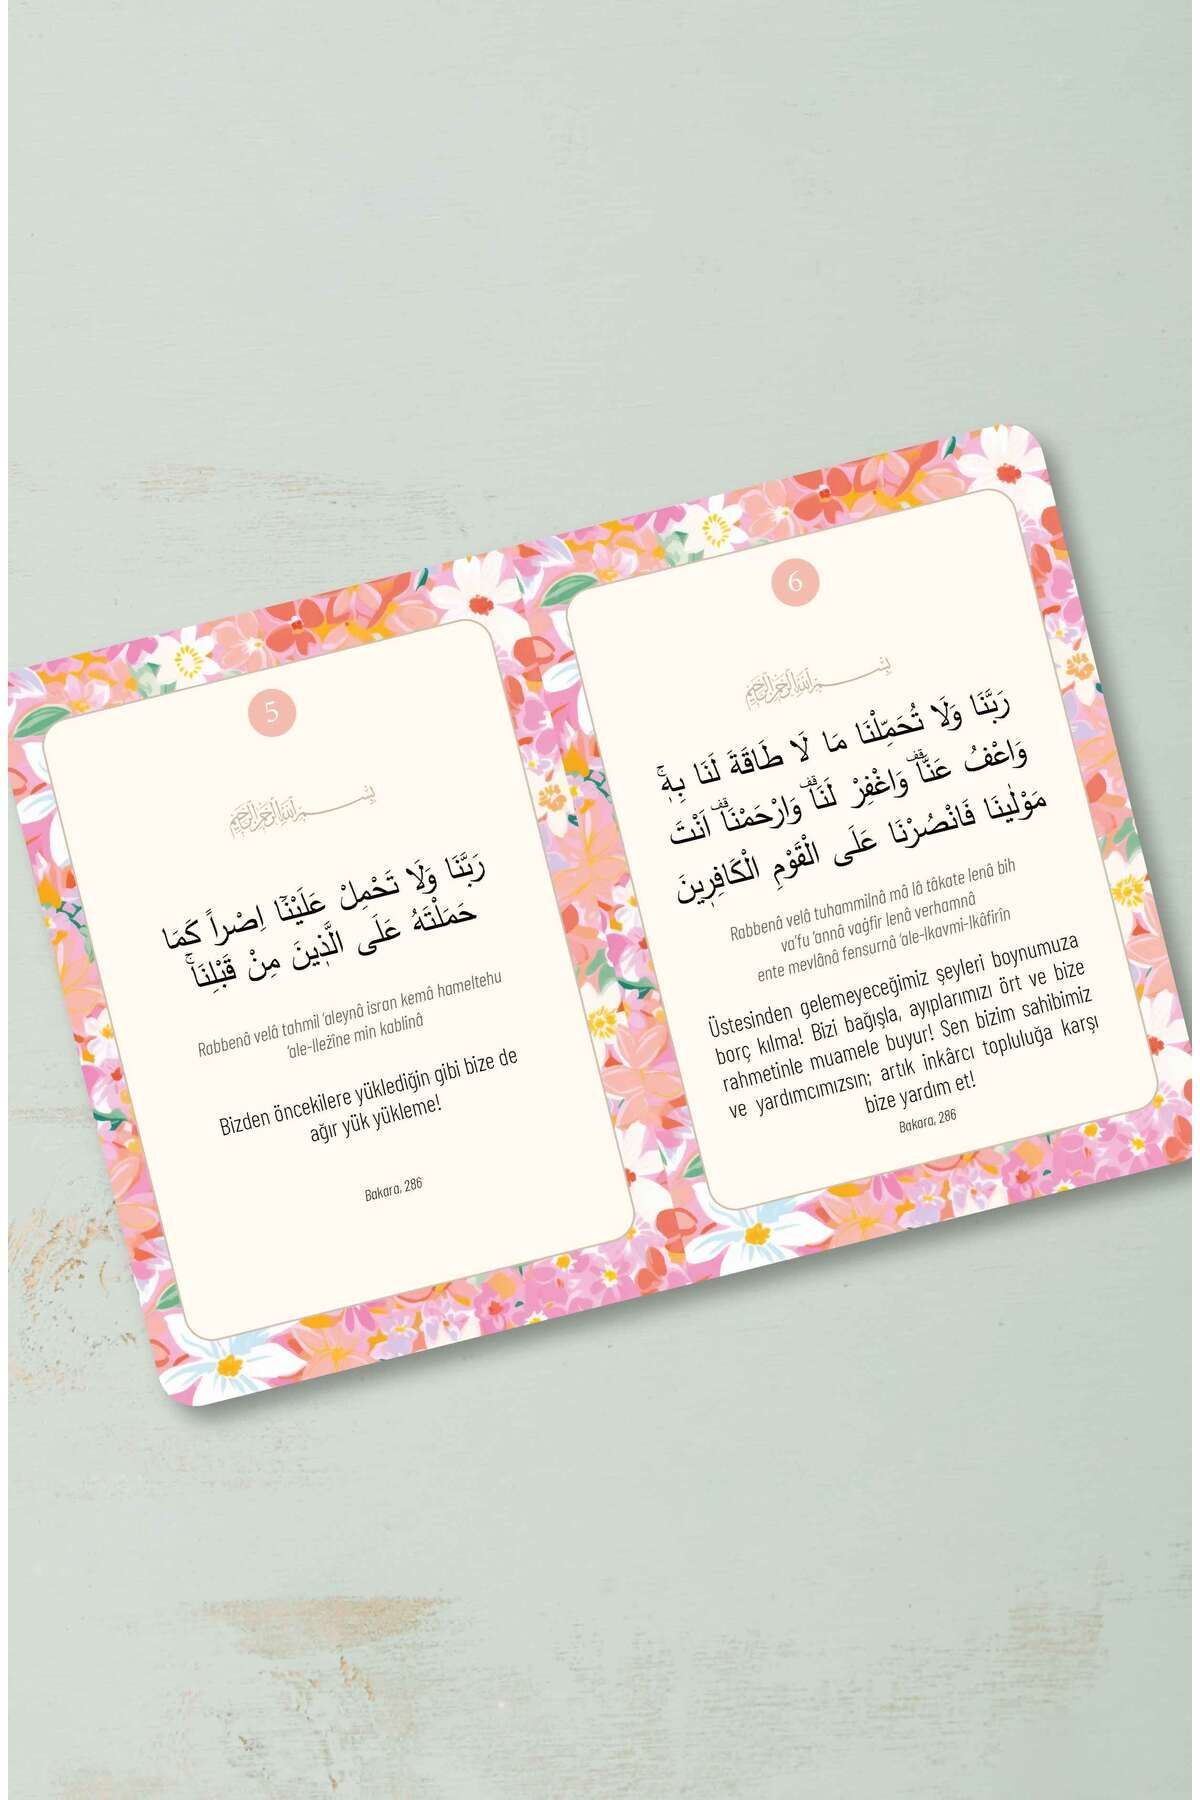 5
رَبَّنَا وَلَا تَحْمِلْ عَلَيْنَٓا اِصْراً كَمَا
حَمَلْتَهُ عَلَى الَّذ۪ينَ مِنْ قَبْلِنَاۚ
Rabbenâ velâ tahmil ‘aleynâ isran kemâ hameltehu
‘ale-lležîne min kablinâ
Bizden öncekilere yüklediğin gibi bize de
ağır yük yükleme!
Bakara, 286
6
بِسْمِ اللهِ الرَّحْمٰنِ الرَّحِيمِ
رَبَّنَا وَلَا تُحَمِّلْنَا مَا لَا طَاقَةَ لَنَا بِه۪ۚ
وَاعْفُ عَنَّا۠ وَاغْفِرْ لَنَا۠ وَارْحَمْنَا۠ اَنْتَ
مَوْلٰينَا فَانْصُرْنَا عَلَى الْقَوْمِ الْكَافِر۪ينَ
Rabbenâ velâ tuhammilnâ mâ lâ tâkate lenâ bih
va’fu ’annâ vaģfir lenâ verhamnâ
ente mevlânâ fensurnâ ‘ale-lkavmi-lkâfirîn
Üstesinden gelemeyeceğimiz şeyleri boynumuza
borç kılma! Bizi bağışla, ayıplarımızı ört ve bize
rahmetinle muamele buyur! Sen bizim sahibimiz
ve yardımcımızsın; artık inkârcı topluluğa karşı
bize yardım et!
Bakara, 286